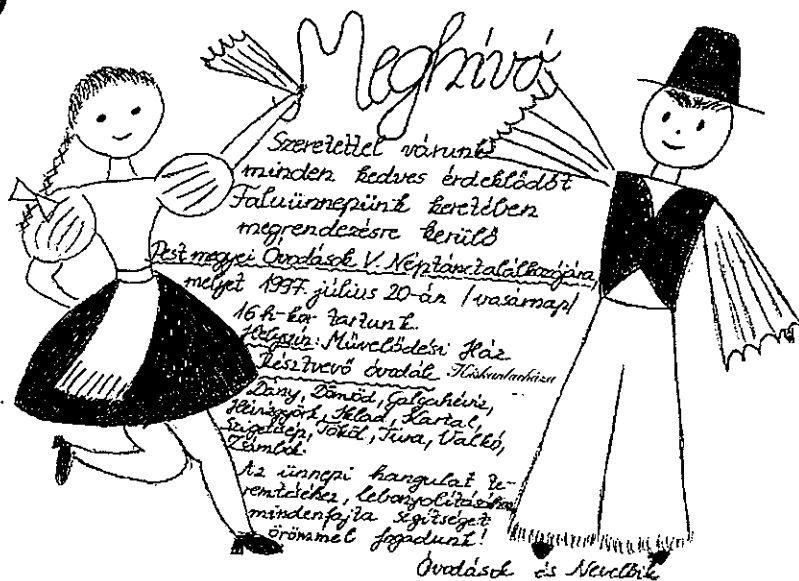 Meghívó
Szeretettel várunk
minden kedves érdeklődőt
Faluünnepünk keretében
megrendezésre kerülő
Pest megyei Óvodások V. Néptánctalálkozójára,
melyet 1997. július 20-án /vasárnap/
16 h-kor tartunk.
Helyszín: Művelődési Ház
Résztvevő óvodák:
Dány, Dömsöd, Galgahévíz,
Hévízgyörk, Iklad, Kartal,
Szigetcsép, Tököl, Tura, Valkó,
Zsámbok.
Az ünnepi hangulat te-
remtéséhez, lebonyolításához
mindenfajta segítséget
örömmel fogadunk!
Óvodások és Nevelőik